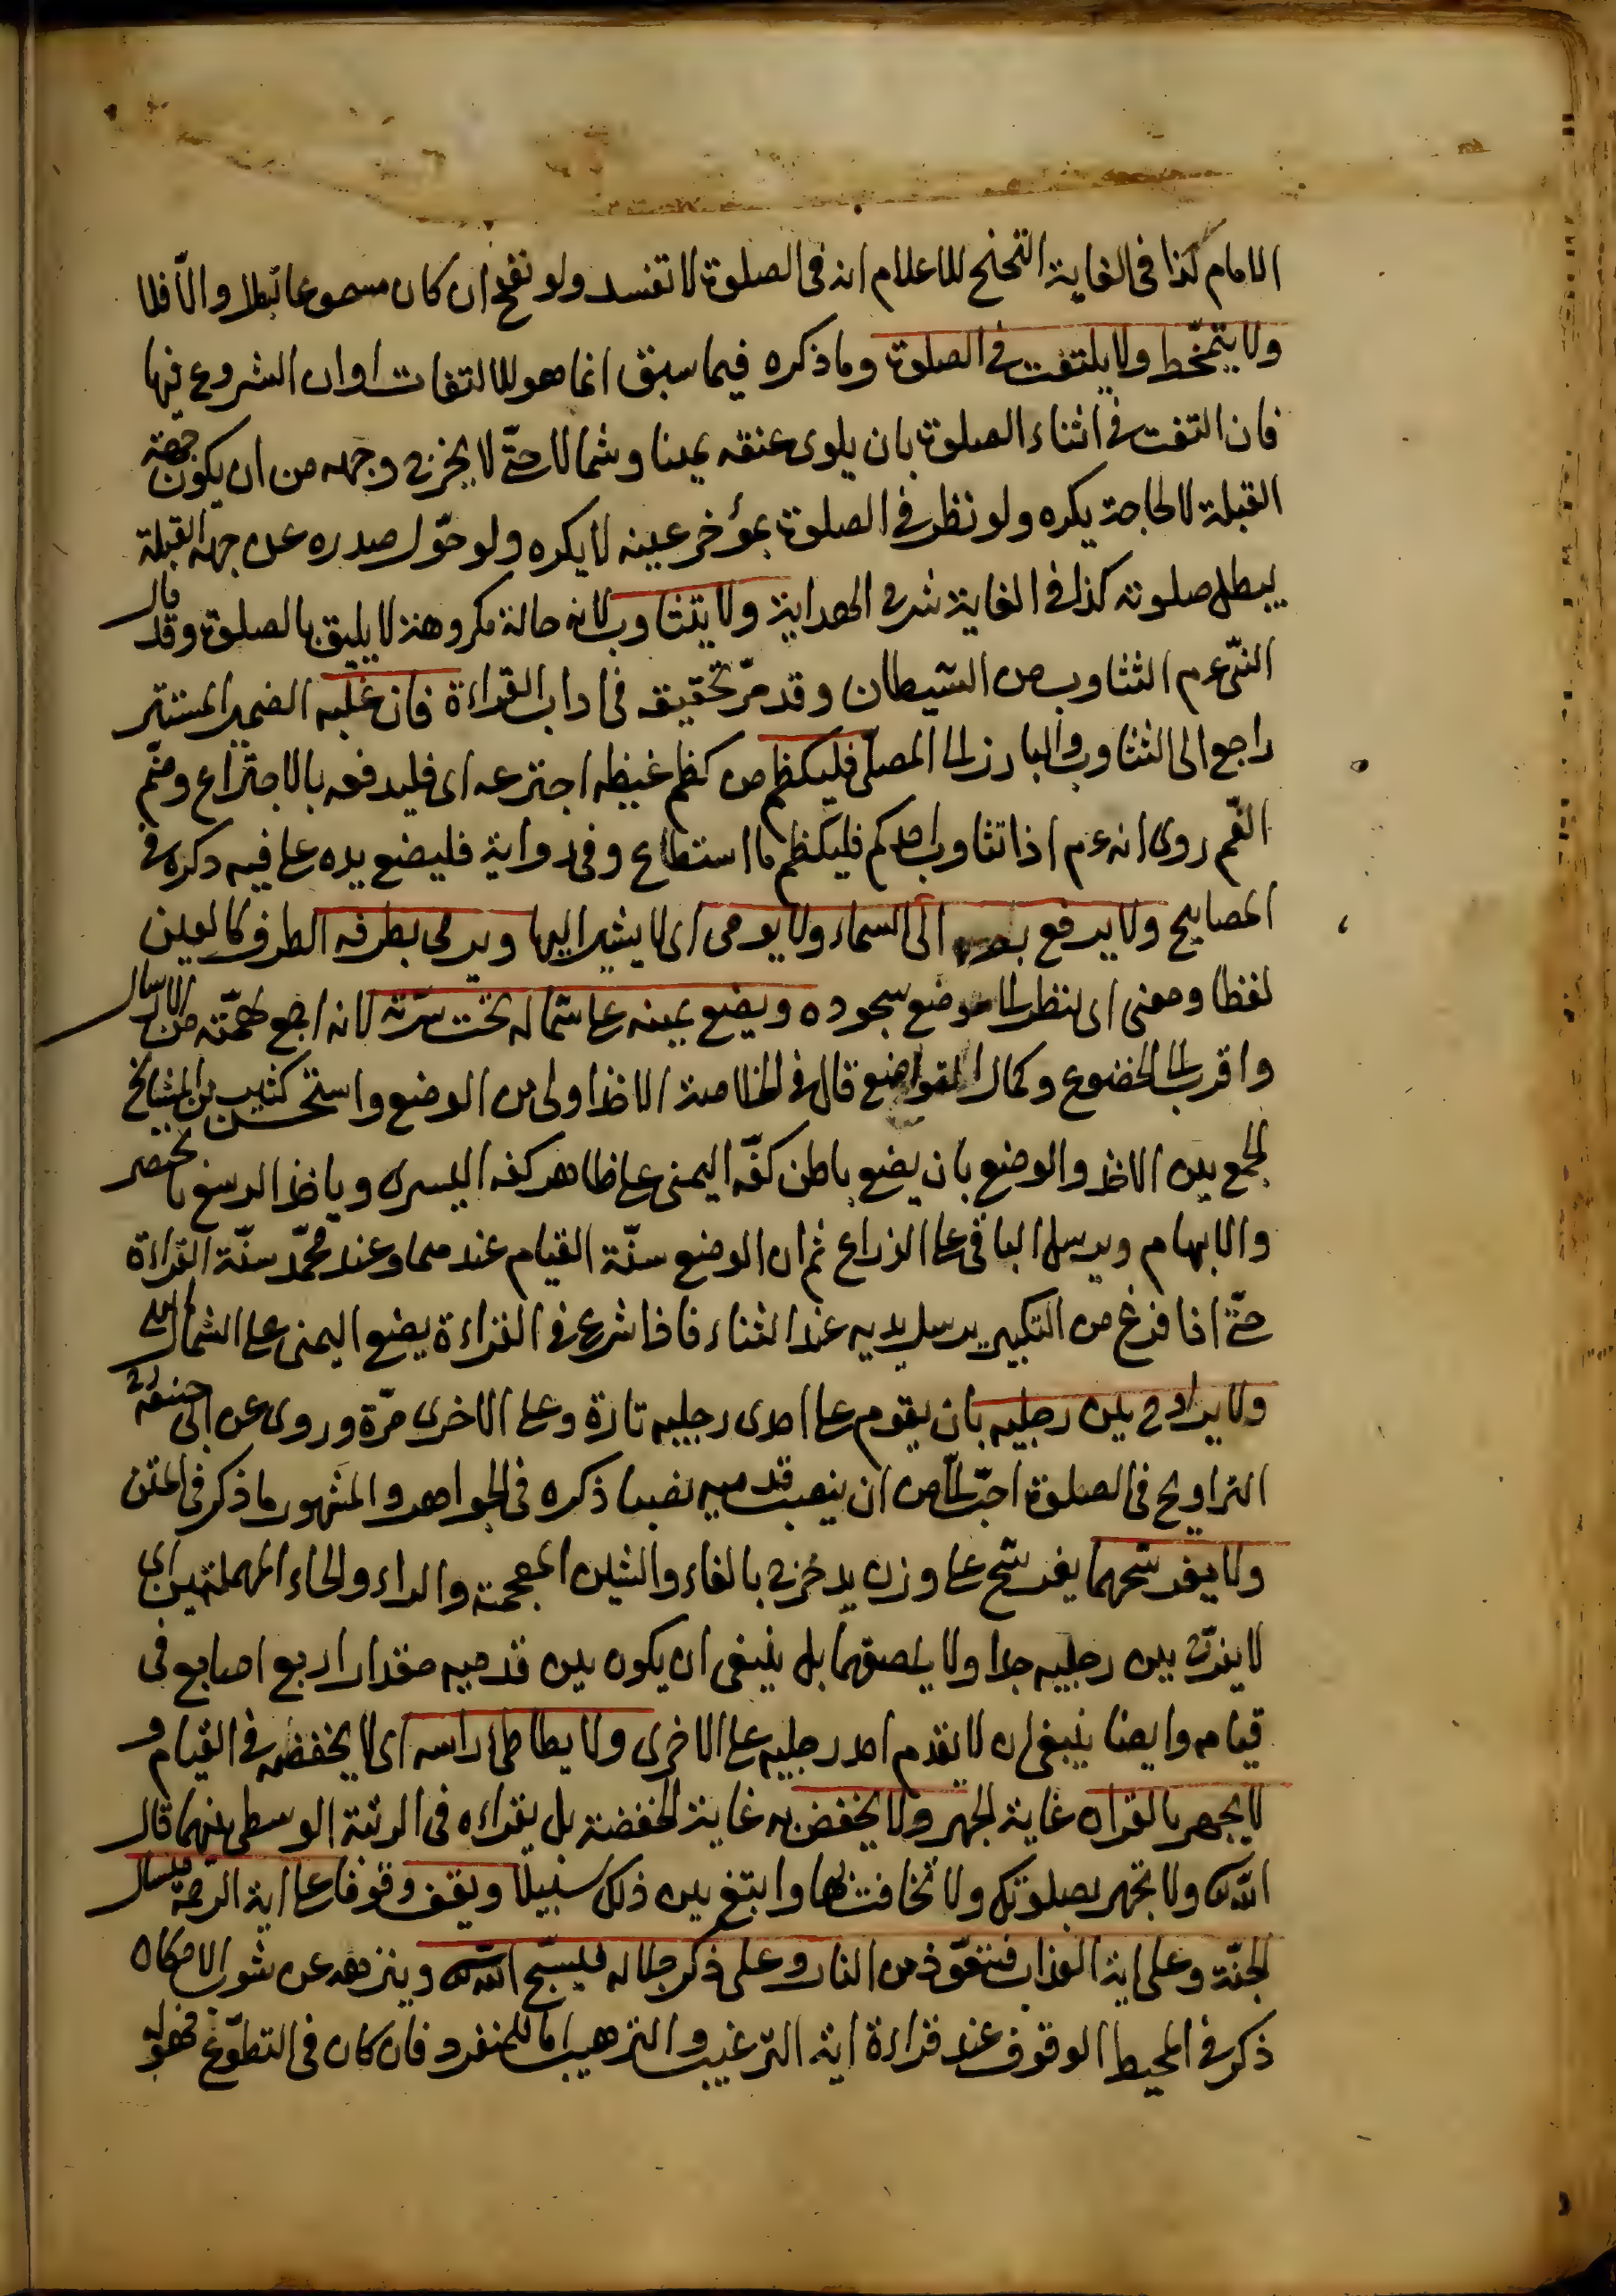 الامام كذا فى الغاية التنحنح للاعلام انه فى الصلوة لا تفسد ولو نفخ ان كان مسموعا تبطل والّا فلا
ولا يتمخّط ولا يلتفت فى الصلوة وما ذكره فيما سبق انما هو للالتفات اوان الشروع فيها
فان التفت فى اثناء الصلوة بان يلوى عنقه يمينا وشمالا حتّى لا يخرج وجهه من ان يكون جهة
القبلة لا لحاجة يكره ولو نظر فى الصلوة بمؤخر عينه لا يكره ولو حوّل صدره عن جهة القبلة
يبطل صلوته كذا فى الغاية شرح الهداية ولا يتثاوب لانه حالة مكروهة لا يليق بالصلوة وقد قال
النبّى عم التثاوب من الشيطان وقد مرّ تحقيقه فى اداب القراءة فان غلبه الضمير المستتر
راجع الى التثاوب والبارز الى المصلّى فليكظم من كظم غيظه اجترعه اى فليدفعه بالاجتراع وضمّ
الفم روى انه عم اذا تثاوب احدكم فليكظم ما استطاع وفى رواية فليضع يده على فيه ذكره فى
المصابيح ولا يرفع بصره الى السماء ولا يومى اى لا يشير اليها ويرمى بطرفه الطرف كالعين
لفظا ومعنى اى لينظر الى موضع سجوده ويضع يمينه على شماله تحت سرّته لانه اجمع لهمّته من الارسال
واقرب الى الخضوع وكمال التواضع قال فى الخلاصة الاخذ اولى من الوضع واستحسن كثير من المشايخ
الجمع بين الاخذ والوضع بان يضع باطن كفّه اليمنى على ظاهر كفه اليسرى وياخذ الرسغ بالخنصر
والابهام ويرسل الباقى على الذراع ثم ان الوضع سنّة القيام عندهما وعند محمّد سنّة القراءة
حتّى اذا فرغ من التكبير يرسل يديه عند الثناء فاذا شرع فى القراءة يضع اليمنى على الشمال
ولا يراوح بين رجليه بان يقوم على احدى رجليه تارة وعلى الاخرى مرّة وروى عن ابى حنيفة
التراويح فى الصلوة احبّ الىّ من ان ينصب قدميه نصبا ذكره فى الجواهر والمشهور ما ذكر فى المتن
ولا يفرشحهما يفرشح على وزن يدحرج بالفاء والشين المعجمة والراء والحاء المهملتين اى
لا يفرّق بين رجليه جدا ولا يلصقهما بل ينبغى ان يكون بين قدميه مقدار اربع اصابع فى
قيامه وايضا ينبغى ان لا يقدم احد رجليه على الاخرى ولا يطاطئ راسه اى لا يخفضه فى القيام و
لا يجهر بالقران غاية الجهر ولا يخفض به غاية الخفضة بل يقراءه فى الرتبة الوسطى منهما قال
الله تع ولا تجهر بصلوتك ولا تخافت بها وابتغ بين ذلك سبيلا ويقف وقوفا على اية الرحمة فيسال
الجنّة وعلى اية العذاب فيتعوّذ من النار وعلى ذكر جلاله فيسبّح الله تع وينزهه عن شوب الامكان
ذكر فى المحيط الوقوف عند قراءة اية الترغيب والترهيب اما للمنفرد فان كان فى التطوّع فهو